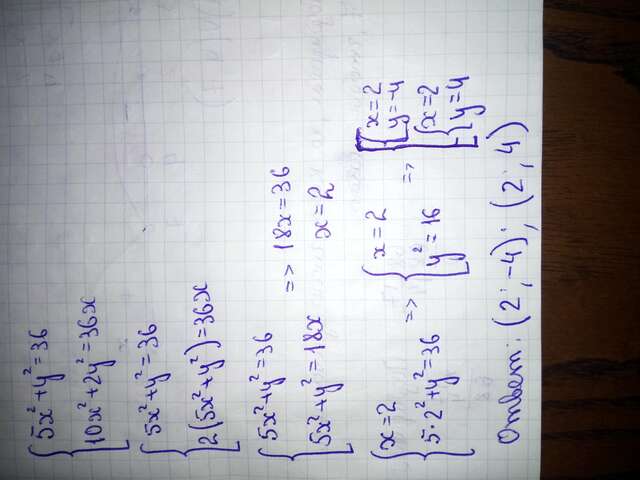 {5x²+y²=36
{10x²+2y²=36x
{5x²+y²=36
{2(5x²+y²)=36x
{5x²+y²=36 => 18x=36
{5x²+y²=18x x=2
{x=2 => {x=2 => [{x=2
{5·2²+y²=36 {y²=16 {y=-4
[{x=2
{y=4
Ответ: (2;-4); (2;4)